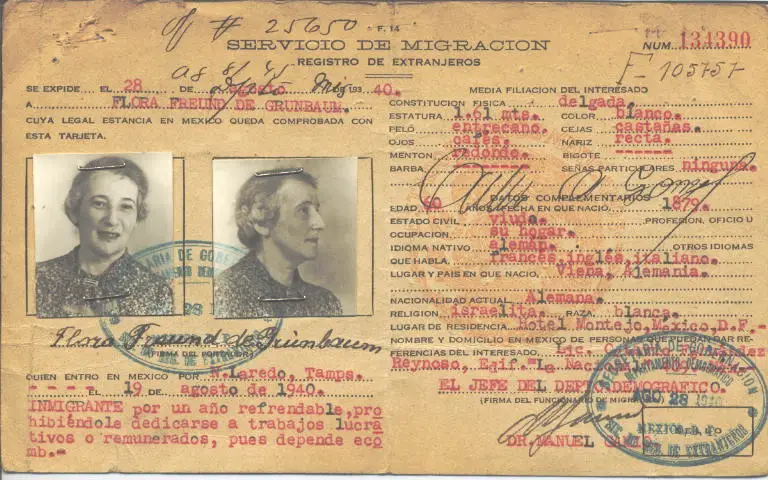 # 25650
F. 14
SERVICIO DE MIGRACION
REGISTRO DE EXTRANJEROS
NUM. 134390
F-105757-
SE EXPIDE EL 28 DE agosto DE 193 40.
A FLORA FREUND DE GRUNBAUM.
CUYA LEGAL ESTANCIA EN MEXICO QUEDA COMPROBADA CON
ESTA TARJETA.
Flora Freund de Grünbaum
(FIRMA DEL PORTADOR)
QUIEN ENTRO EN MEXICO POR N.Laredo, Tamps.
- - - - EL 19 DE agosto de 1940.
INMIGRANTE por un año refrendable,pro
hibiéndole dedicarse a trabajos lucra
tivos o remunerados, pues depende eco
mb.-
MEDIA FILIACION DEL INTERESADO
CONSTITUCION FISICA delgada.
ESTATURA 1.61 mts. COLOR blanco.
PELO entrecano. CEJAS castañas.
OJOS cafés. NARIZ recta.
MENTON redondo. BIGOTE ------
BARBA ------- SEÑAS PARTICULARES ninguna.
DATOS COMPLEMENTARIOS
EDAD 60 AÑOS (FECHA EN QUE NACIO, 1879.
ESTADO CIVIL viuda. PROFESION, OFICIO U
OCUPACION su hogar.
IDIOMA NATIVO alemán. OTROS IDIOMAS
QUE HABLA, francés,inglés,italiano.
LUGAR Y PAIS EN QUE NACIO, Viena, Alemania.
NACIONALIDAD ACTUAL Alemana.
RELIGION israelita. RAZA blanca.
LUGAR DE RESIDENCIA Hotel Montejo,México,D.F.-
NOMBRE Y DOMICILIO EN MEXICO DE PERSONAS QUE PUEDAN DAR RE-
FERENCIAS DEL INTERESADO. Lic.
Reynoso, Edif. "La
EL JEFE DEL DEPTO.DEMOGRAFICO.
(FIRMA DEL FUNCIONARIO DE
DR.MANUEL
AGO. 28 1940
MEXICO, D. F.
DE EXTRANJEROS